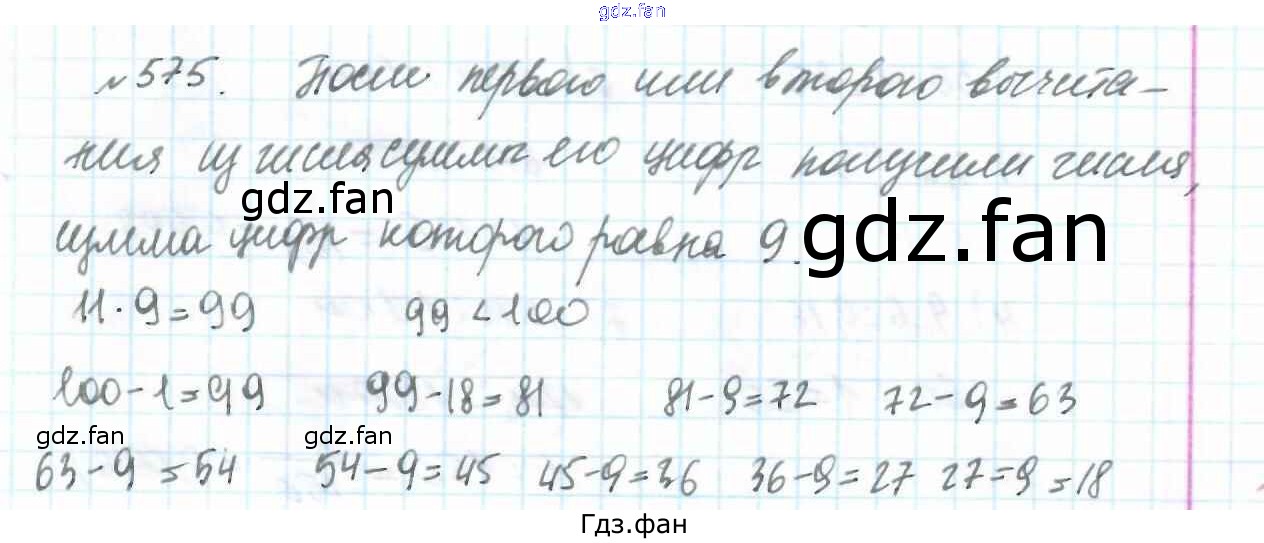 gdz.fan
№575. После первого или второго вычита-
ния из числа суммы его цифр получили число,
gdz.fan
gdz.fan
сумма цифр которого равна 9.
11·9=99 99<100
100-1=99 99-18=81 81-9=72 72-9=63
gdz.fan gdz.fan
63-9=54 54-9=45 45-9=36 36-9=27 27-9=18
Гдз.фан